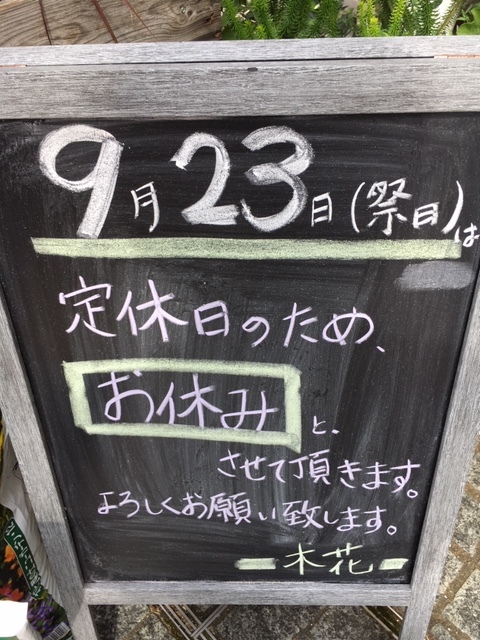 9月23日(祭日)は
定休日のため、
お休みと、
させて頂きます。
よろしくお願い致します。
ー木花ー